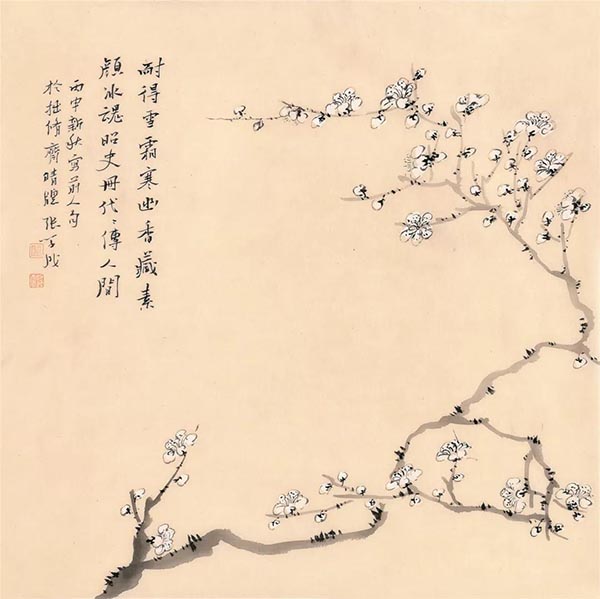 耐得雪霜寒幽香藏素
顔冰魂昭史冊代〻傳人間
丙申新秋寫前人句
於拙脩齋晴牕張